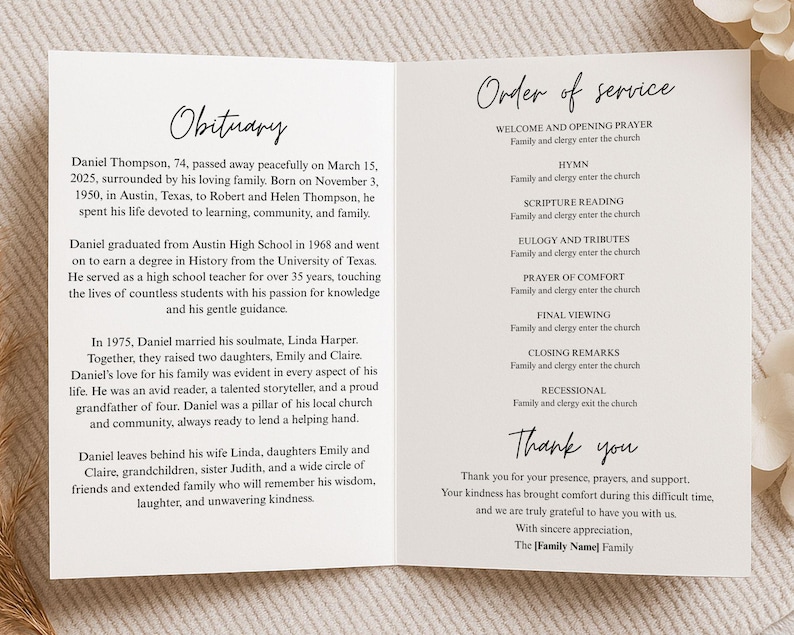 Obituary
Daniel Thompson, 74, passed away peacefully on March 15,
2025, surrounded by his loving family. Born on November 3,
1950, in Austin, Texas, to Robert and Helen Thompson, he
spent his life devoted to learning, community, and family.
Daniel graduated from Austin High School in 1968 and went
on to earn a degree in History from the University of Texas.
He served as a high school teacher for over 35 years, touching
the lives of countless students with his passion for knowledge
and his gentle guidance.
In 1975, Daniel married his soulmate, Linda Harper.
Together, they raised two daughters, Emily and Claire.
Daniel's love for his family was evident in every aspect of his
life. He was an avid reader, a talented storyteller, and a proud
grandfather of four. Daniel was a pillar of his local church
and community, always ready to lend a helping hand.
Daniel leaves behind his wife Linda, daughters Emily and
Claire, grandchildren, sister Judith, and a wide circle of
friends and extended family who will remember his wisdom,
laughter, and unwavering kindness.
Order of service
WELCOME AND OPENING PRAYER
Family and clergy enter the church
HYMN
Family and clergy enter the church
SCRIPTURE READING
Family and clergy enter the church
EULOGY AND TRIBUTES
Family and clergy enter the church
PRAYER OF COMFORT
Family and clergy enter the church
FINAL VIEWING
Family and clergy enter the church
CLOSING REMARKS
Family and clergy enter the church
RECESSIONAL
Family and clergy exit the church
Thank you
Thank you for your presence, prayers, and support.
Your kindness has brought comfort during this difficult time,
and we are truly grateful to have you with us.
With sincere appreciation,
The [Family Name] Family